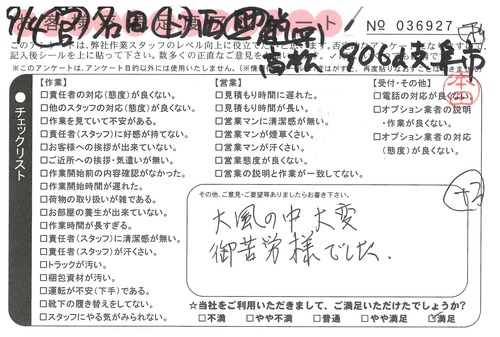 No 036927
このアンケートは、弊社作業スタッフのレベル向上に役立て
記入後シールを上に貼って下さい。数多くの正直なご意見を
※このアンケートは、アンケート目的以外には使用
チェックリスト
【作業】
□責任者の対応(態度)が良くない。
□他のスタッフの対応(態度)が良くない。
□作業を見ていて不安がある。
□責任者(スタッフ)に好感が持てない。
□お客様への挨拶が出来ていない。
□ご近所への挨拶・気遣いが無い。
□作業開始前の内容確認がなかった。
□作業開始時間が遅れた。
□荷物の取り扱いが雑である。
□お部屋の養生が出来ていない。
□作業時間が長すぎる。
□責任者(スタッフ)に清潔感が無い。
□責任者(スタッフ)が汗くさい。
□トラックが汚い。
□梱包資材が汚い。
□運転が不安(下手)である。
□靴下の履き替えをしてない。
□スタッフにやる気がみられない。
【営業】
□見積もり時間に遅れた。
□見積もり時間が長い。
□営業マンに清潔感が無い。
□営業マンが煙草くさい。
□営業マンが汗くさい。
□営業態度が良くない。
□営業の説明と作業が一致してない。
【受付・その他】
□電話の対応が良くない。
□オプション業者の説明
・作業が良くない。
□オプション業者の対応
(態度)が良くない。
その他、ご意見・ご要望等ありましたらお書き下さい。
大風の中大変
御苦労様でした。
☆当社をご利用いただきまして、ご満足いただけたでしょうか?
□不満 □やや不満 □普通 □やや満足 ☑満足